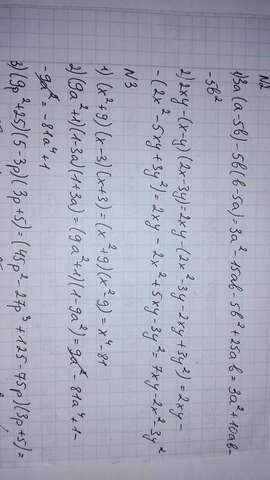 N2
1) 3a(a-5b)-5b(b-5a)=3a²-15ab-5b²+25ab=3a²+10ab-
-5b²
2) 2xy-(x-y)(2x-3y)=2xy-(2x²-3xy-2xy+3y²)=2xy-
-(2x²-5xy+3y²)=2xy-2x²+5xy-3y²=7xy-2x²-3y²
N3
1) (x²+9)(x-3)(x+3)=(x²+9)(x²-9)=x⁴-81
2) (9a²+1)(1-3a)(1+3a)=(9a²+1)(1-9a²)=9a²-81a⁴+1-
-9a²=-81a⁴+1
3) (9p²+25)(5-3p)(3p+5)=(45p²-27p³+125-75p)(3p+5)=